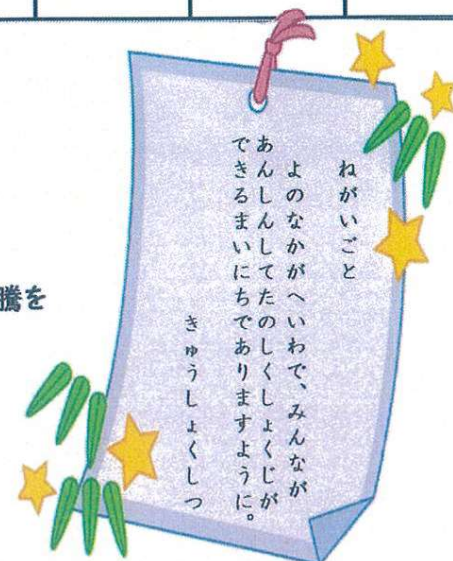 ねがいごと
よのなかがへいわで、みんなが
あんしんしてたのしくしょくじが
できるまいにちでありますように。
きゅうしょくしつ
騰を